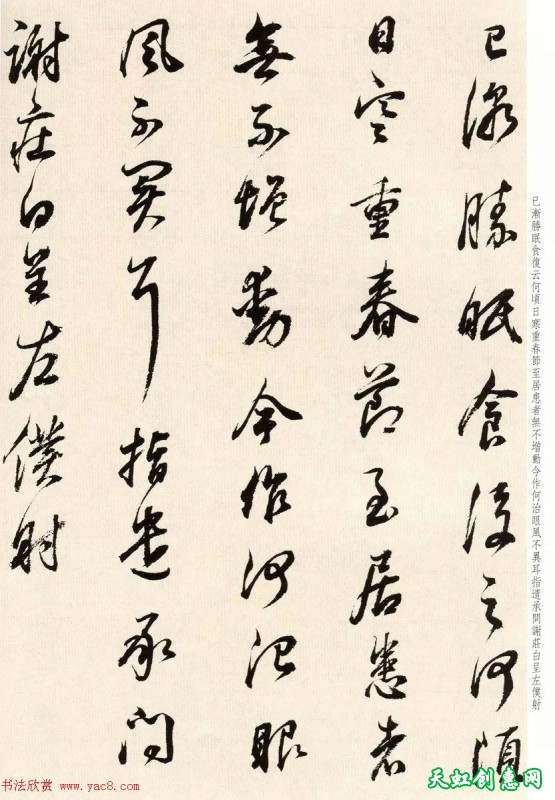 已漸勝眠食復云何頃
日寒重春節至居患者
無不增動今作何治眼
風不異耳指遣承問
謝莊白呈左僕射
已漸勝眠食復云何頃日寒重春節至居患者無不增動今作何治眼風不異耳指遣承問謝莊白呈左僕射
书法欣赏 www.yac8.com
天虹创意网